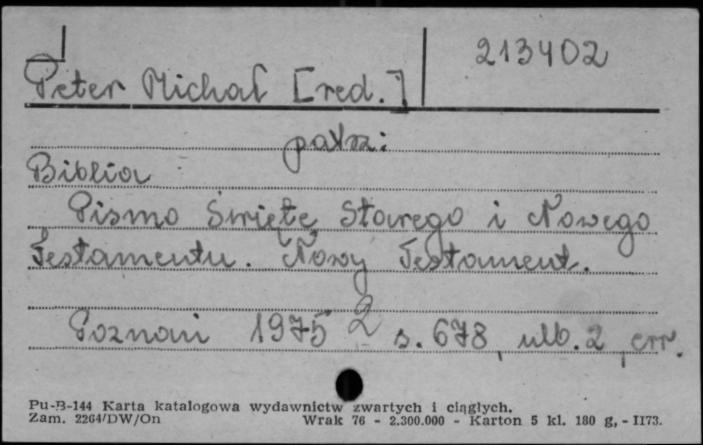 213402
Peter Michał [red.]
patrz:
Biblia
Pismo Święte Starego i Nowego
Testamentu. Nowy Testament.
Poznań 1975 2 s. 678, ulb. 2, err.
Pu-B-144 Karta katalogowa wydawnictw zwartych i ciągłych.
Zam. 2264/DW/On Wrak 76 - 2.300.000 - Karton 5 kl. 180 g, - II73.